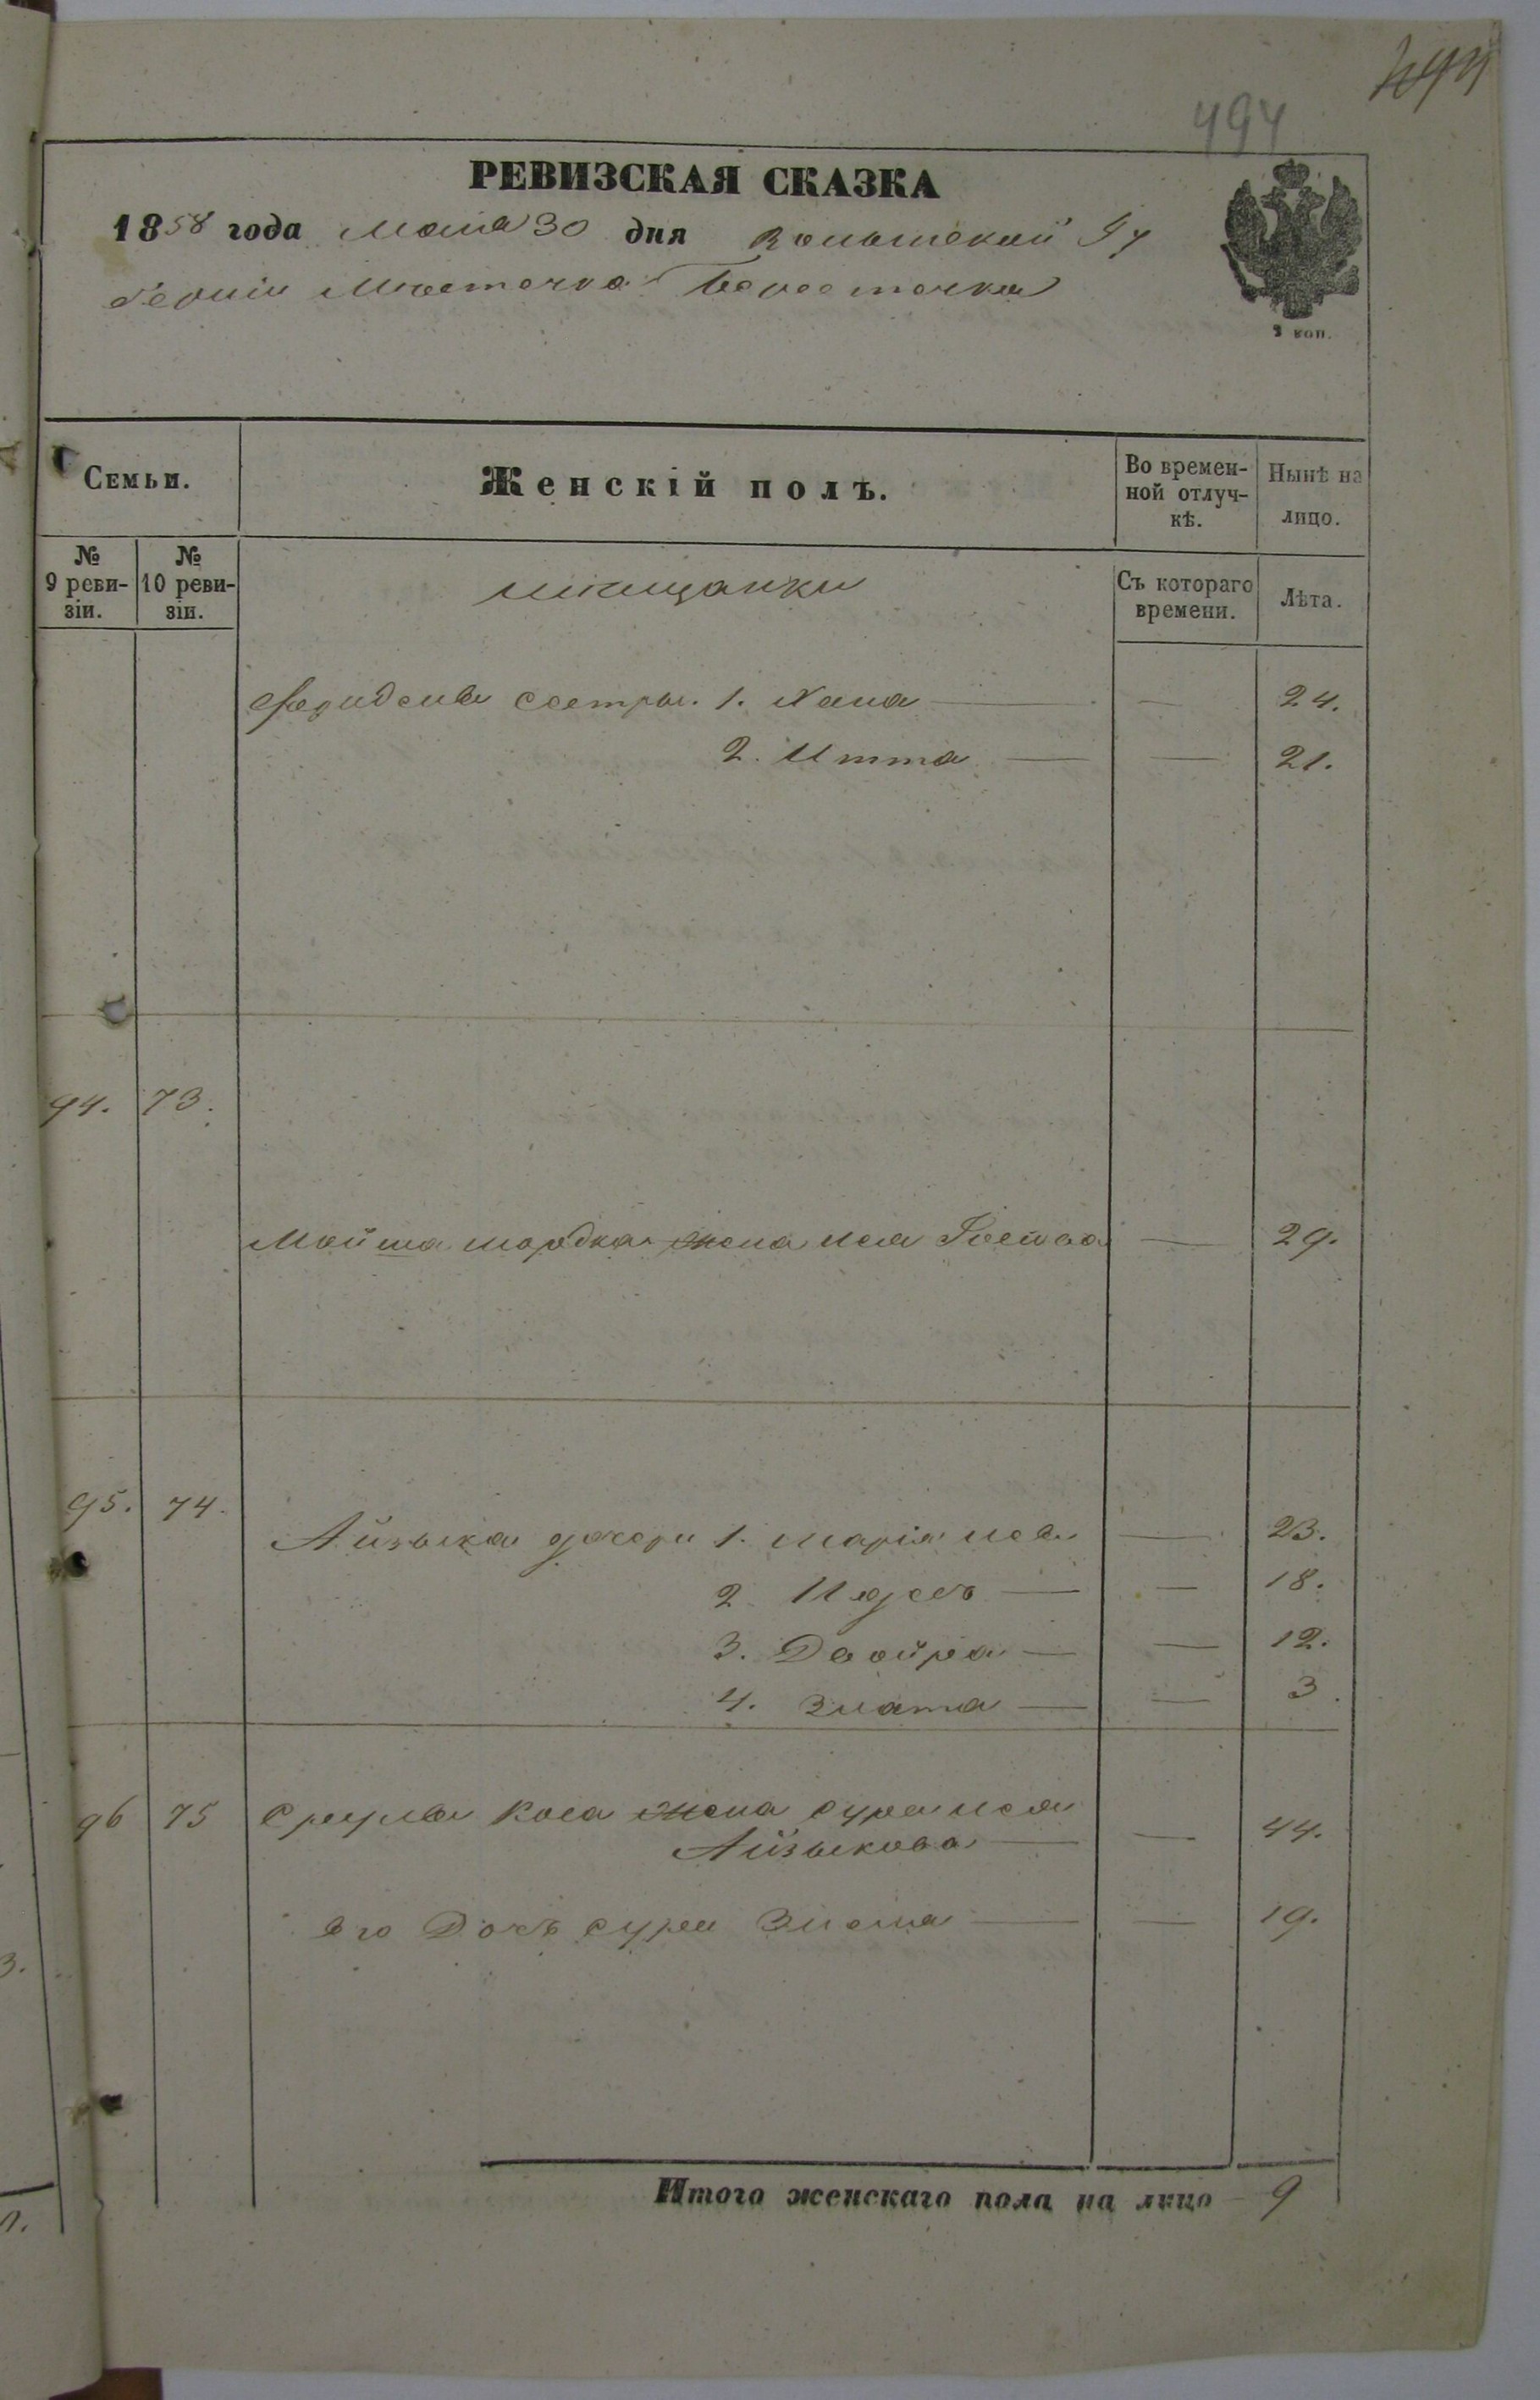 494
РЕВИЗСКАЯ СКАЗКА
1858 года Маія 30 дня Волынской Гу
берніи Мѣстечка Берестечка
2 коп.
Семьи.
Женскій полъ.
Во времен-
ной отлуч-
кѣ.
Нынѣ на
лицо.
№
9 реви-
зіи.
№
10 реви-
зіи.
мѣщанки
Съ котораго
времени.
Лѣта.
сестры. 1. Хана — — 24.
2. Итта — — 21.
94. 73.
Мойша Мордка жена Лея — 29.
95. 74.
Айзыка дочери 1. Марія Лея — 23.
2. — — 18.
3. Двойра — — 12.
4. Злата — — 3.
96 75 Сруля жена Сура Лея
Айзыкова — — 44.
его Дочь Сура Злата — — 19.
Итого женскаго пола на лицо 9